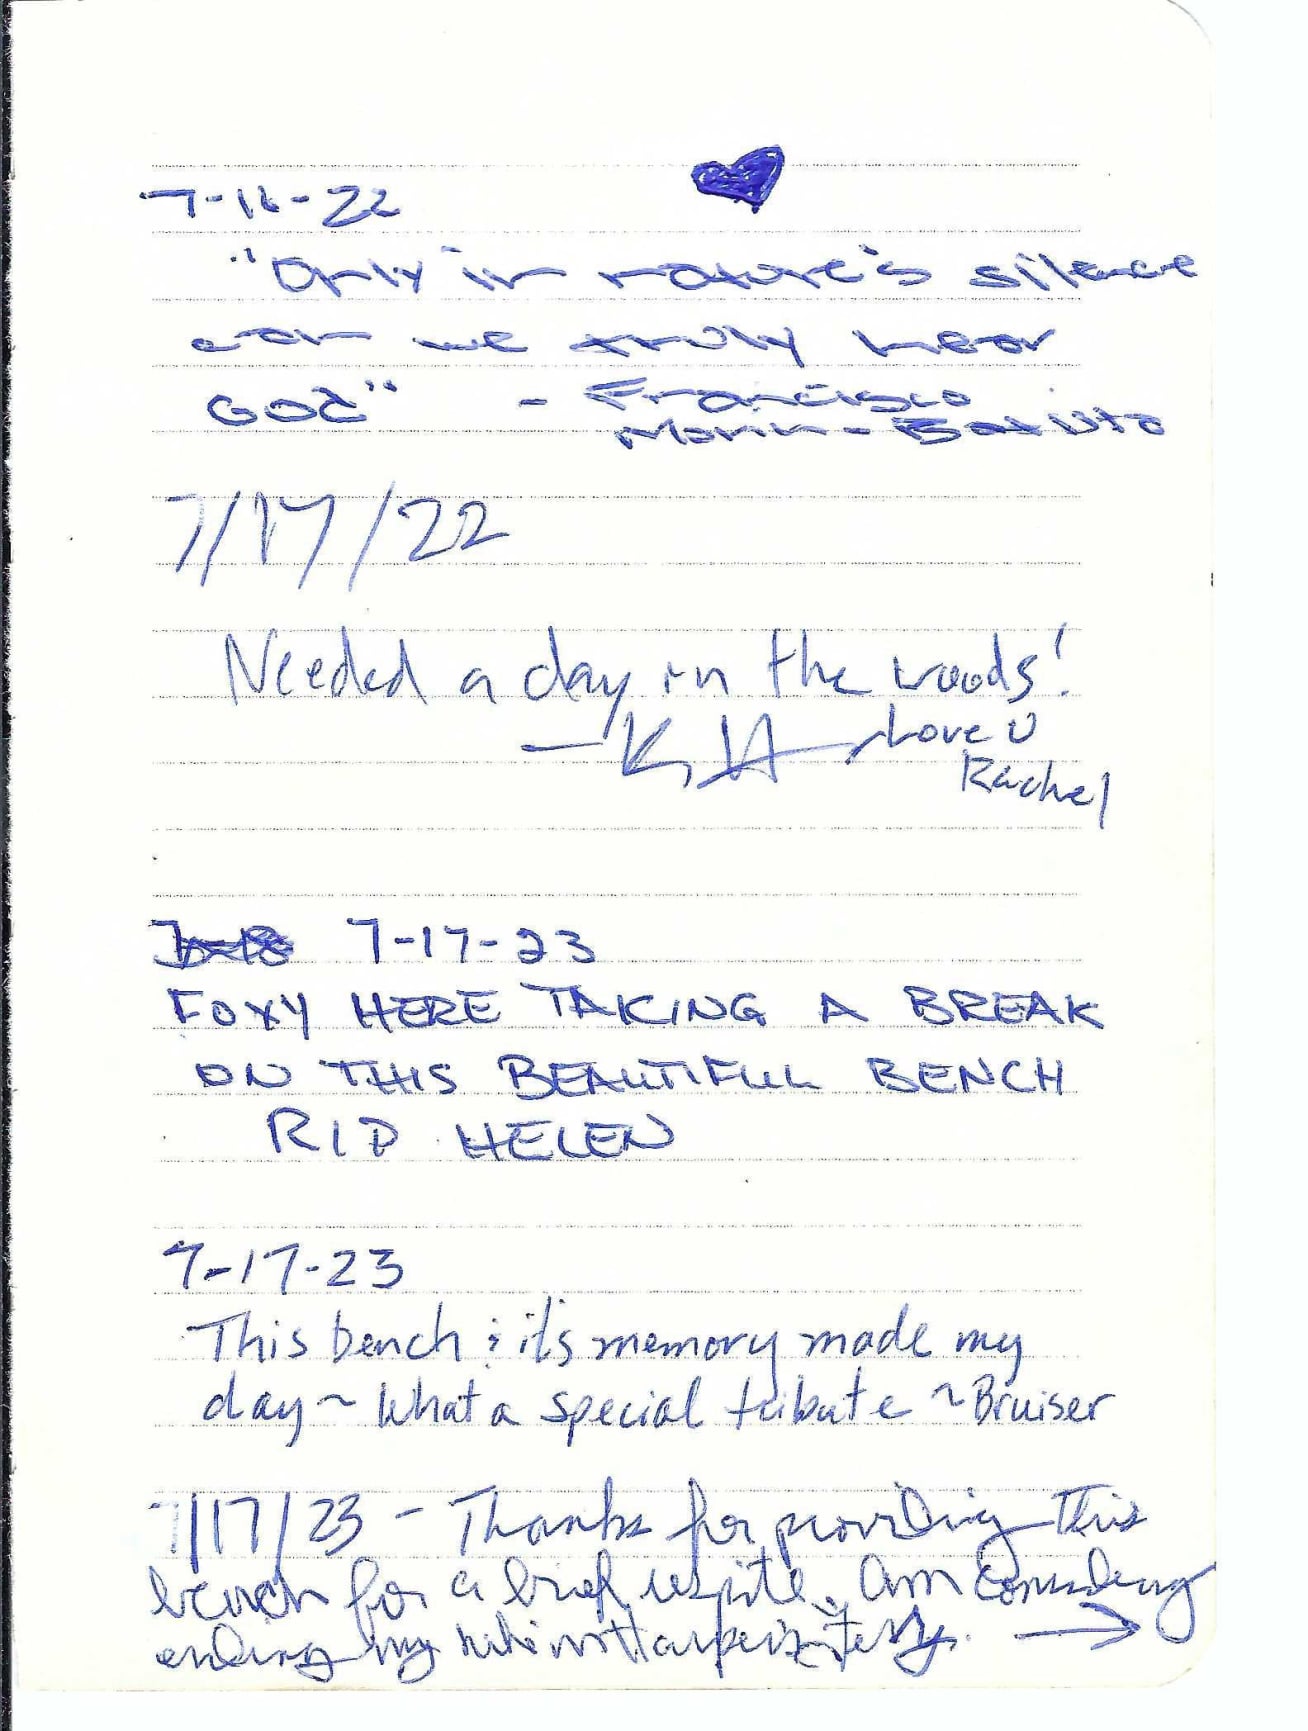 7-16-22
"Only in nature's silence
can we truly hear
God" - Francisco
Morin-
7/17/22
Needed a day in the woods!
- Love U
Rachel
7-17-23
FOXY HERE TAKING A BREAK
ON THIS BEAUTIFUL BENCH
RIP HELEN
7-17-23
This bench & its memory made my
day ~ What a special tribute ~ Bruiser
7/17/23 - Thanks for providing this
bench for a brief respite. Am considering
ending my hike →